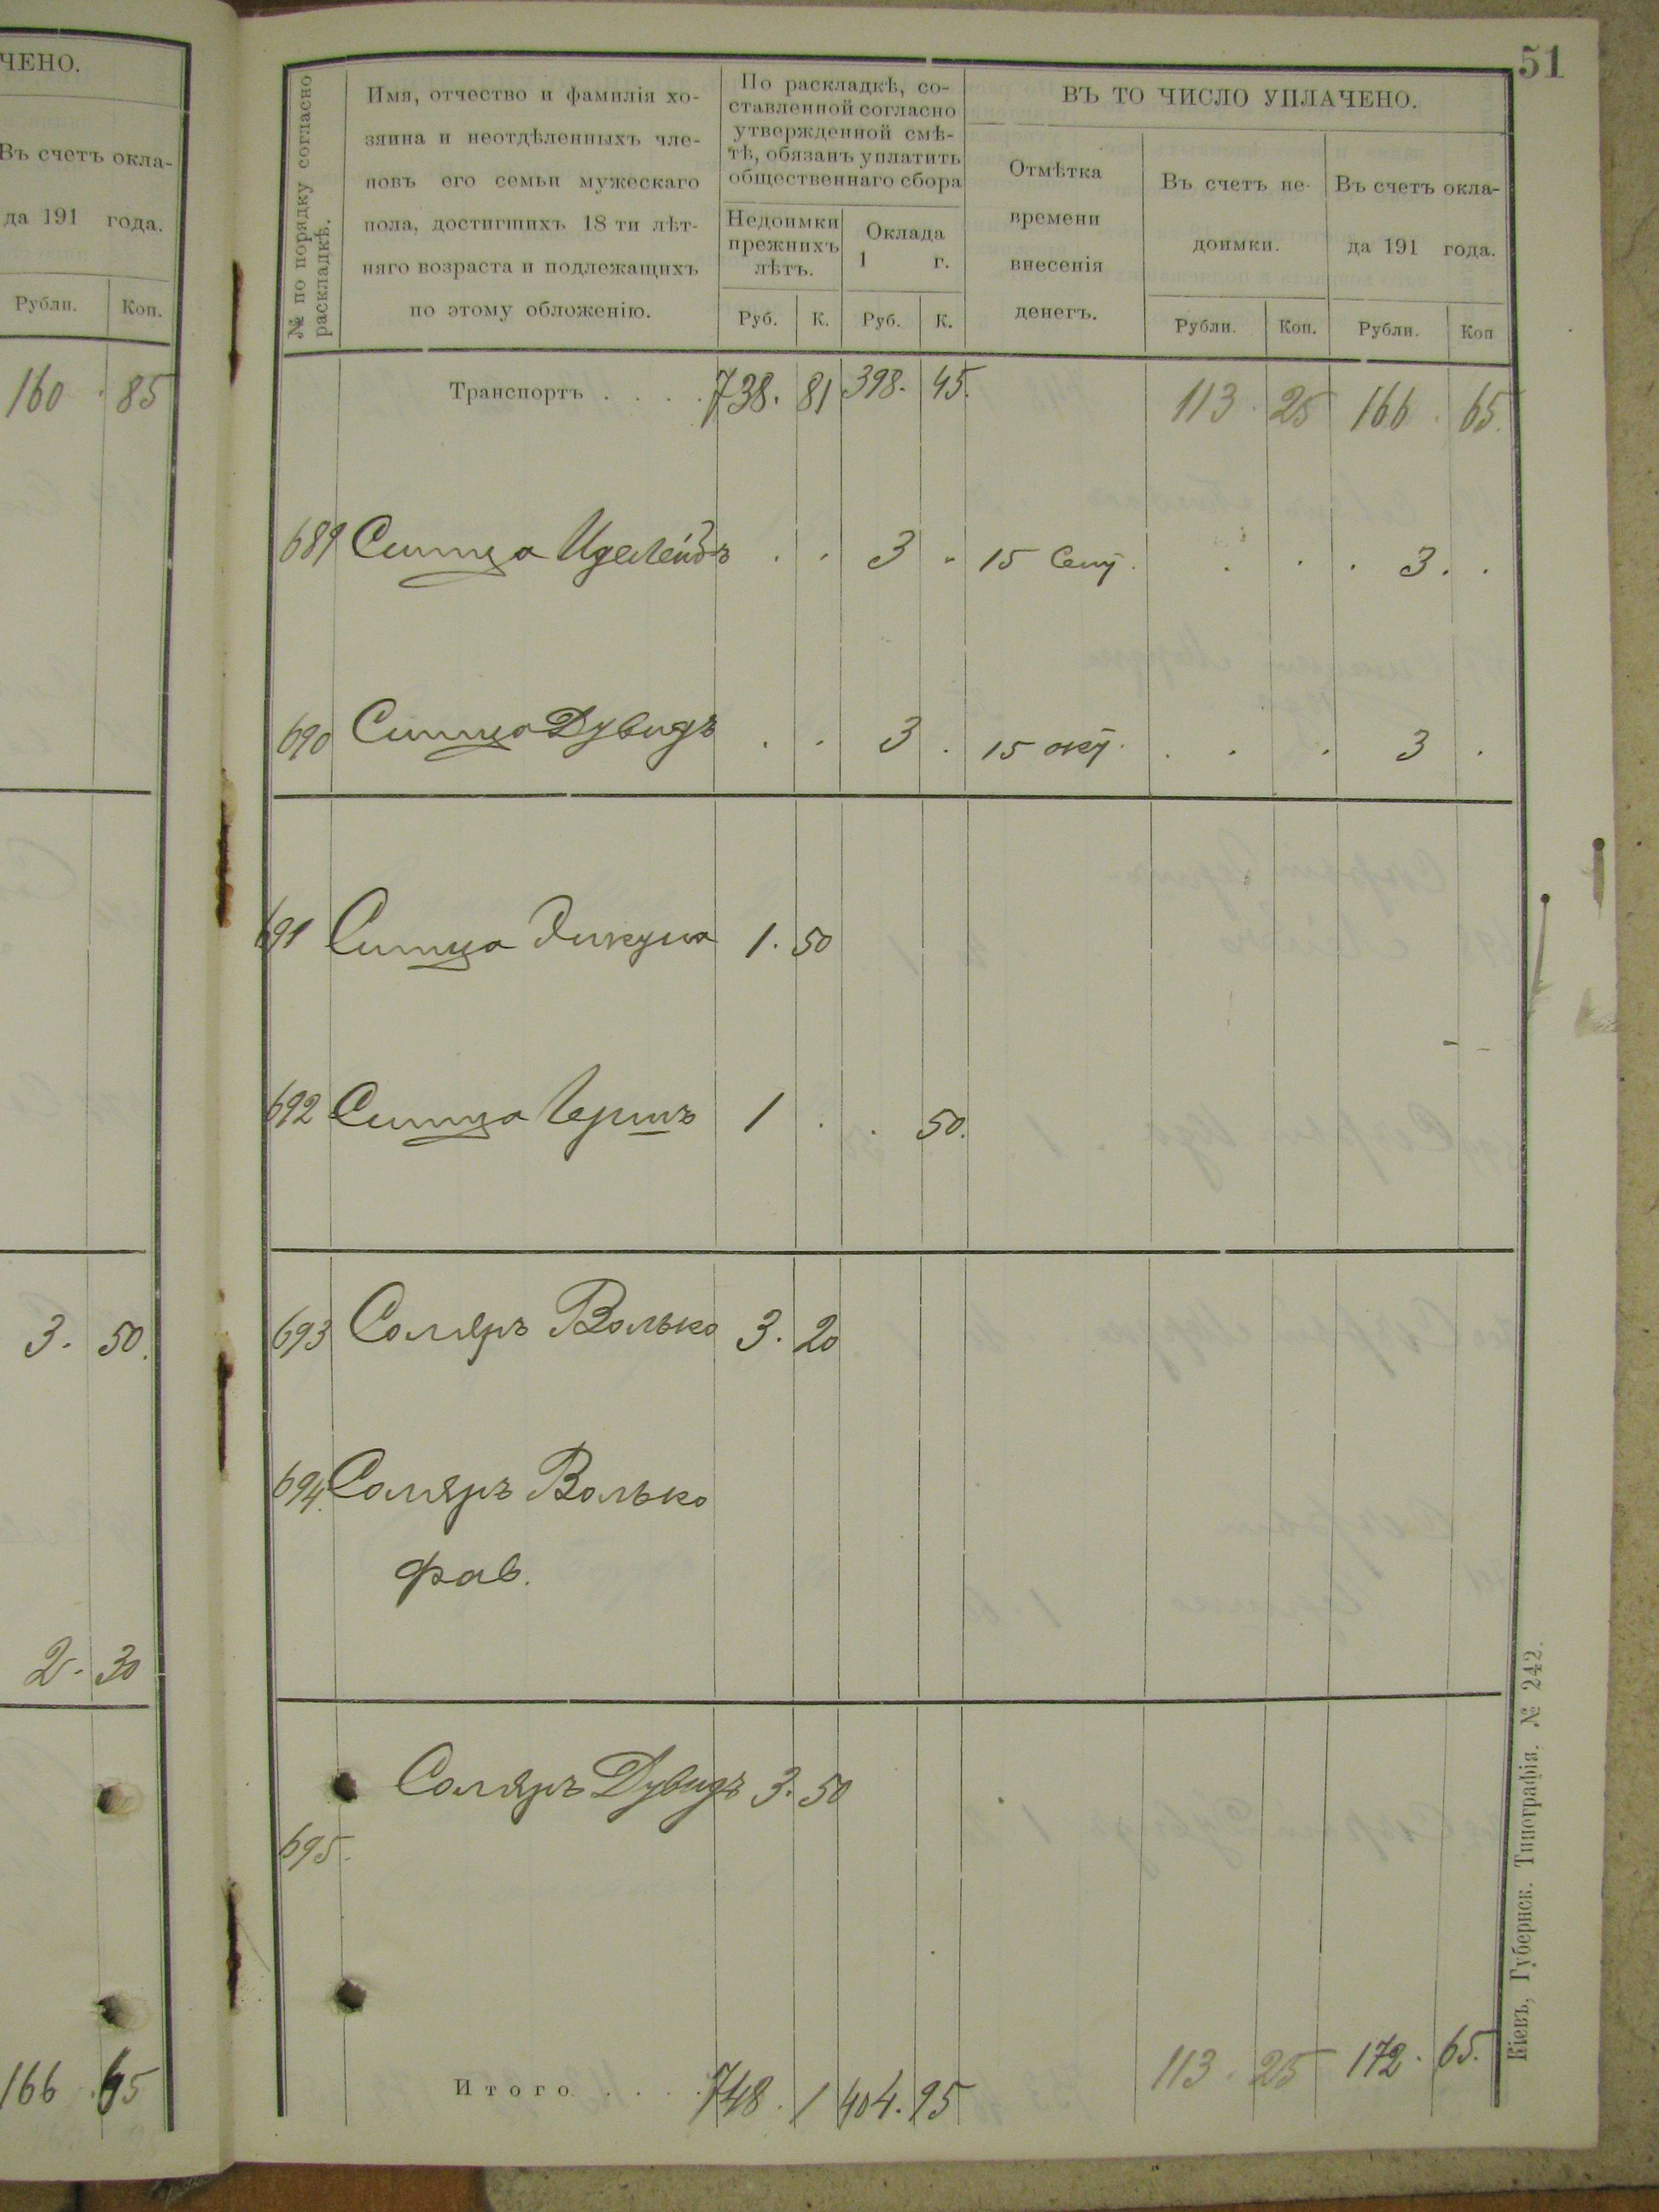 ЧЕНО.
Въ счетъ окла-
да 191 года.
Рубли. Коп.
160 . 85
3. 50.
2. 30
166 . 65
51
№ по порядку согласно
раскладкѣ.
Имя, отчество и фамилія хо-
зяина и неотдѣленныхъ чле-
новъ его семьи мужескаго
пола, достигшихъ 18 ти лѣт-
няго возраста и подлежащихъ
по этому обложенію.
По раскладкѣ, со-
ставленной согласно
утвержденной смѣ-
тѣ, обязанъ уплатить
общественнаго сбора
Недоимки
прежнихъ
лѣтъ.
Оклада
1 г.
Руб. К. Руб. К.
ВЪ ТО ЧИСЛО УПЛАЧЕНО.
Отмѣтка
времени
внесенія
денегъ.
Въ счетъ не-
доимки.
Въ счетъ окла-
да 191 года.
Рубли. Коп. Рубли. Коп
Транспортъ . . . . 738. 81 398. 45. 113 . 25 166 . 65.
689 Симца . . 3 . 15 Сент. . . . 3. .
690 Симца Дувидъ . . 3 . 15 окт. . . . 3 .
691 Симца 1. 50
692 Симца Гершъ 1 . . 50.
693 Соляръ Волько 3. 20
694. Соляръ Волько
фав.
695. Соляръ Дувидъ 3. 50
Итого . . . . 748 . 1 404. 95 113 . 25 172 . 65.
Кіевъ, Губернск. Типографія. № 242.